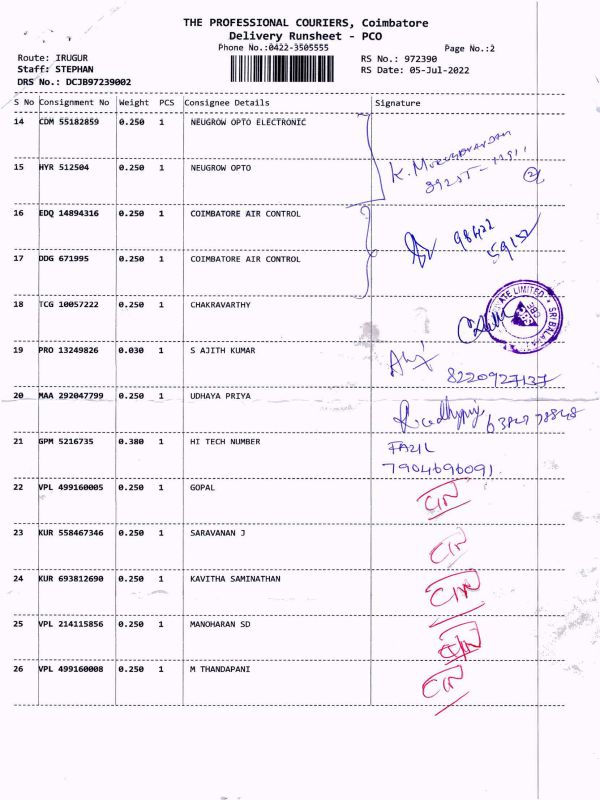 THE PROFESSIONAL COURIERS, Coimbatore
Delivery Runsheet - PCO
Phone No.:0422-3505555
Page No.:2
Route: IRUGUR
RS No.: 972390
Staff: STEPHAN
RS Date: 05-Jul-2022
DRS No.: DCJB97239002
S No Consignment No Weight PCS Consignee Details Signature
14 CDM 55182859 0.250 1 NEUGROW OPTO ELECTRONIC
15 HYR 512504 0.250 1 NEUGROW OPTO
K.
2
16 EDQ 14894316 0.250 1 COIMBATORE AIR CONTROL
17 DDG 671995 0.250 1 COIMBATORE AIR CONTROL
18 TCG 10057222 0.250 1 CHAKRAVARTHY
LIMITED
CBE
19 PRO 13249826 0.030 1 S AJITH KUMAR
8220927137
20 MAA 292047799 0.250 1 UDHAYA PRIYA
21 GPM 5216735 0.380 1 HI TECH NUMBER FAZIL
7904696091
22 VPL 499160005 0.250 1 GOPAL C/N
23 KUR 558467346 0.250 1 SARAVANAN J C/N
24 KUR 693812690 0.250 1 KAVITHA SAMINATHAN C/N
25 VPL 214115856 0.250 1 MANOHARAN SD C/N
26 VPL 499160008 0.250 1 M THANDAPANI C/N